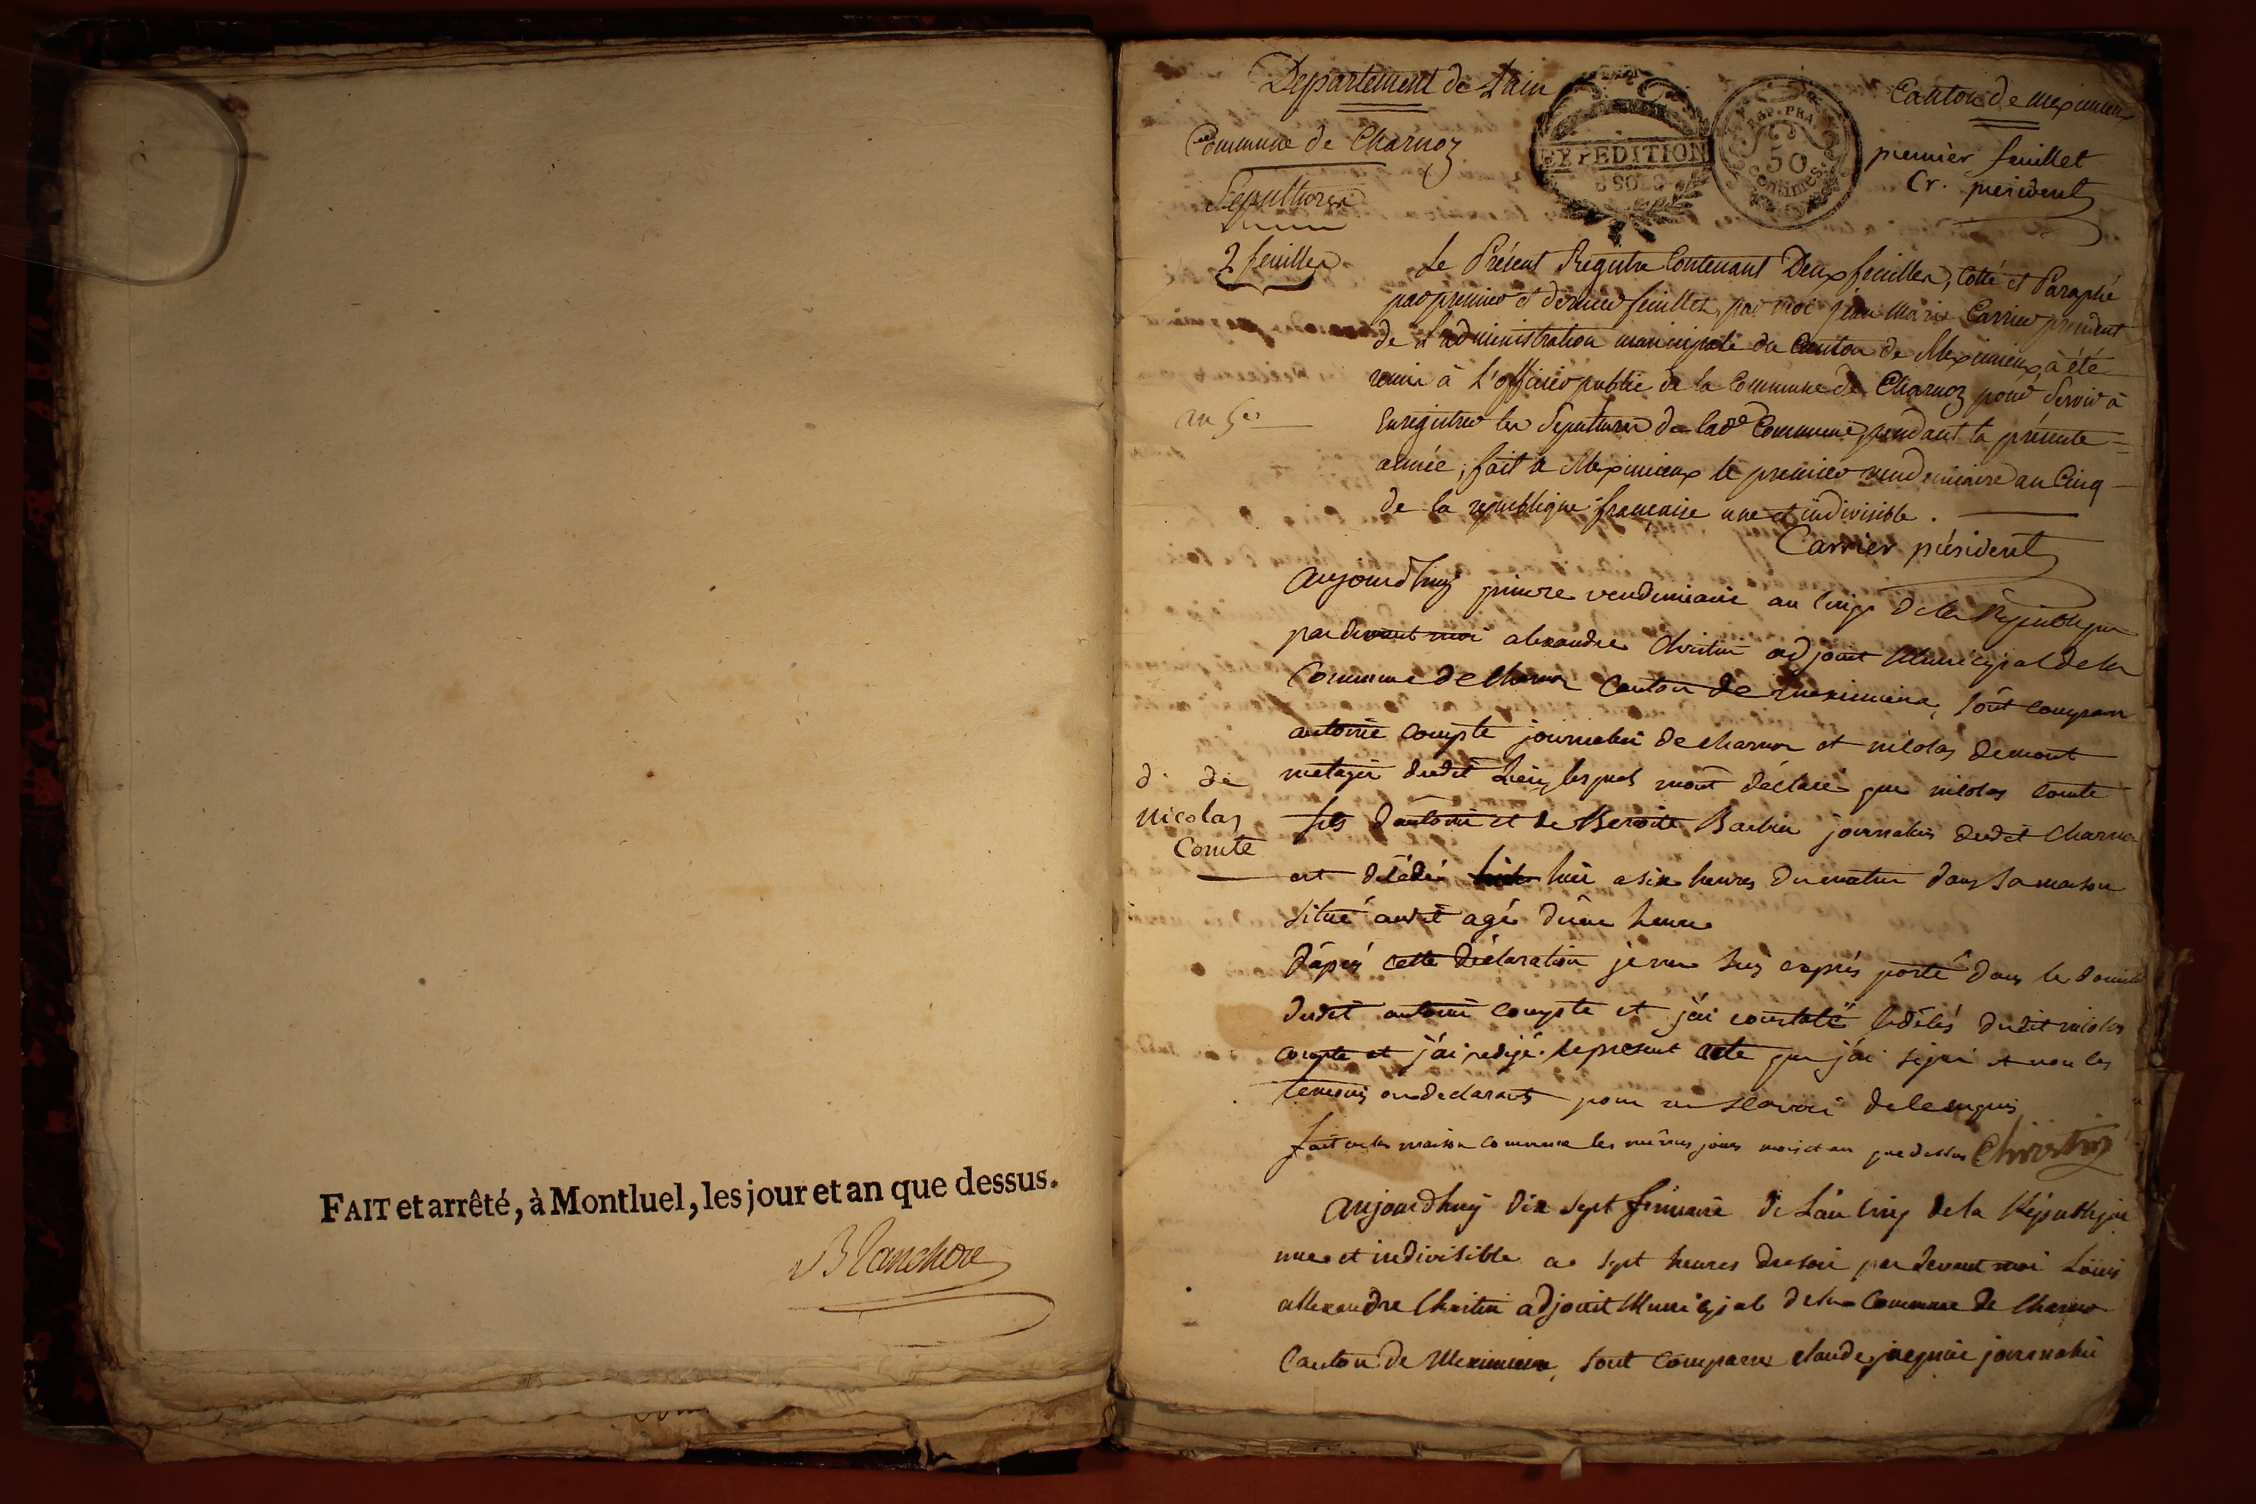 FAIT et arrêté, à Montluel, les jour et an que dessus.
Blanchon
Departement de Lain
Canton de meximieux
EXPEDITION
REP. FRA
50
centimes
Commune de Charnoz
premier feuillet
Cr. president
Sépultures
2 feuilles
Le Présent Registre Contenant Deux feuilles, Cotté et Paraphé
par premier et dernier feuillets, par moi Jean Marie Carrier president
de L'administration municipale du Canton de Meximieux, à été
remis à L'officier public de la Commune de Charnoz pour Servir à
an 5er
Enregistrer les Sépultures de lade Commune, pendant la présente
année, fait a Meximieux le premier vendemiaire an Cinq
de la republique française une et indivisible.
Carrier président
aujourdhuy vendemiaire an Cinq de la Republique
par devant moi alexandre Christin adjoint Municipal de la
Commune de Charnoz Canton de meximieux, sont comparu
antoine Compte journalier de charnoz et nicolas demont
metayer dudit Lieu, lesquels mont déclaré que nicolas Comte
d. de
nicolas
Comte
fils d'antoine et de Benoite Barbier journalier dudit Charnoz
est décédé hier a six heures du matin dans sa maison
situé audit agé d'une heure
d'apres cette déclaration je me suis exprés porté dans le domicile
dudit antoine Compte et j'ai constaté le décés dudit nicolas
compte et j'ai redigé le present acte que j'ai signé et non les
temoins ou declarants pour ne scavoir de ce enquis
fait en la maison commune les mêmes jours mois et an que dessus Christin
aujourdhuy dix sept frimaire de L'an Cinq de la République
une et indivisible a sept heures du soir par devant moi Louis
allexandre Christin adjoint Municipal de la Commune de Charnoz
Canton de Meximieux, sont comparu claude journalier